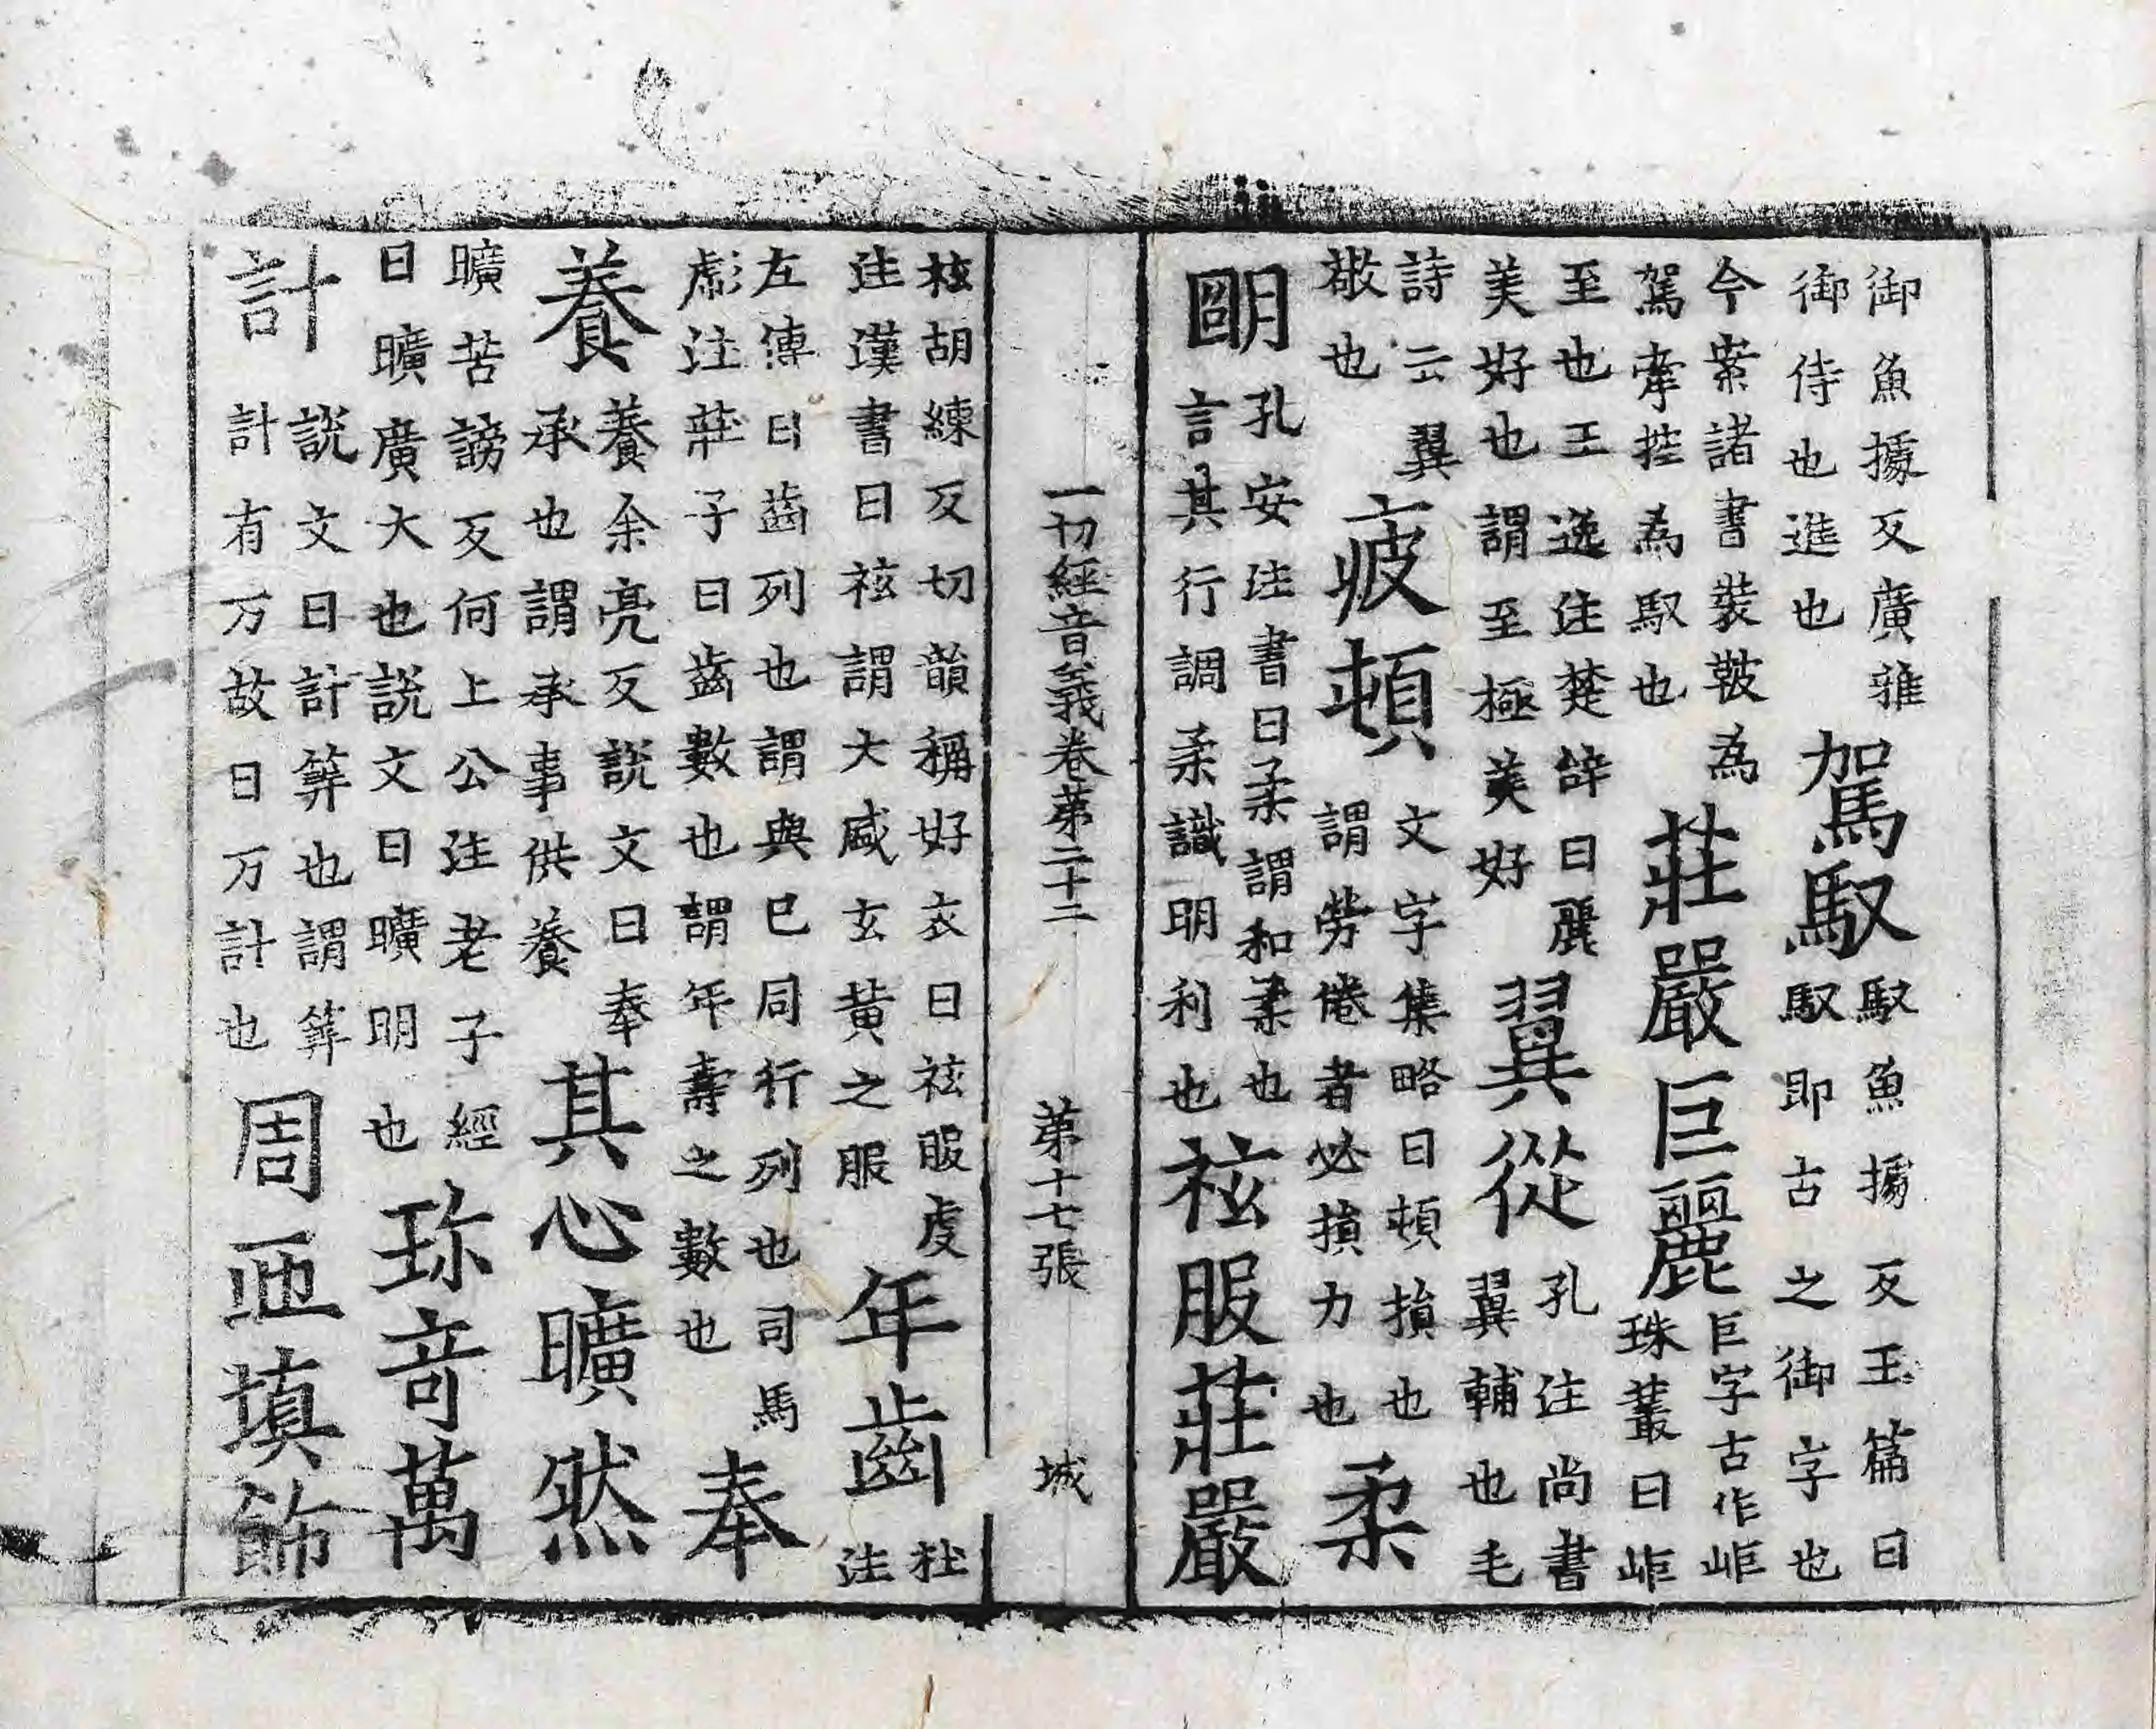 御魚據反廣雅御侍也進也駕馭馭魚據反王篇曰馭即古之御字也
今案諸書裝鞁為駕牽控為馭也莊嚴巨麗巨字古作岠珠叢曰岠
至也王逸注楚辝曰麗美好也謂至極美好翼從孔注尚書翼輔也毛
詩云翼敬也疲頓文字集略曰頓損也謂勞倦者必損力也柔
朙孔安注書曰柔謂和柔也言其行調柔識明利也袨服莊嚴
一切經音義卷苐二十二 苐十七張 城
袨胡練反切韻稱好衣曰袨服虔注漢書曰袨謂大盛玄黃之服年齒杜注
左傳曰齒列也謂與己同行列也司馬彪注莊子曰齒數也謂年壽之數也奉
養養余亮反説文曰奉承也謂承事供養其心曠然
曠苦謗反何上公注老子經曰曠廣大也説文曰曠明也珎竒萬
計説文曰計筭也謂筭計有万故曰万計也周匝填飾